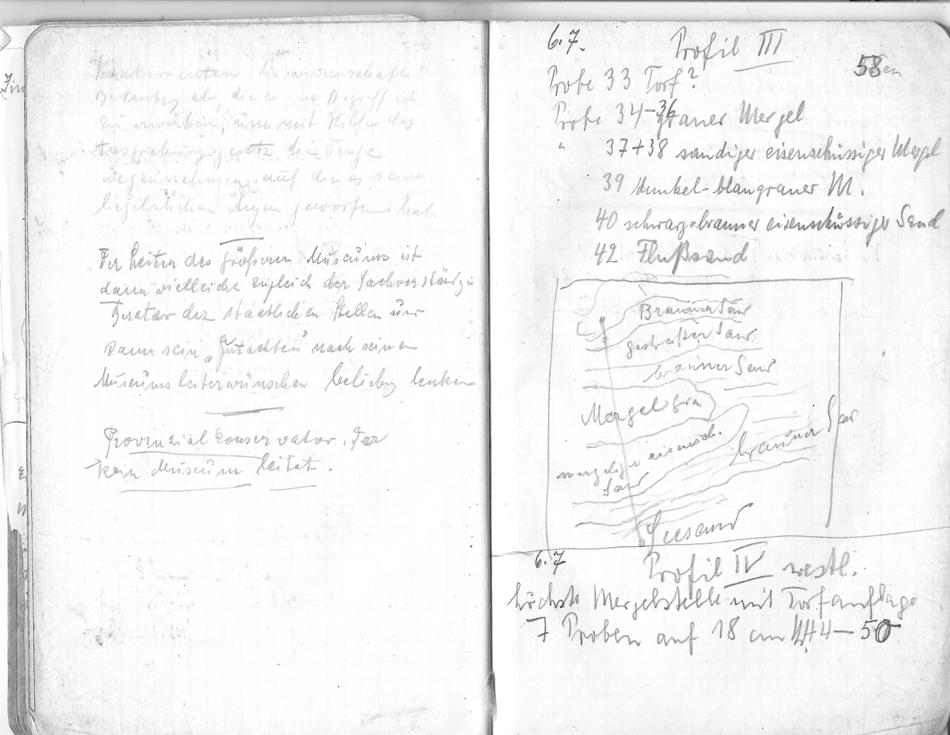 die
Bedeutg ab, die es im Begriff ist
zu erwerben, um mit Hilfe des
die Dinge
auf die es seine
Augen geworfen hat
Der Leiter des größeren Museums ist
dann vielleicht zugleich der Sachverständige
Berater der staatlichen Stellen und
kann sein „Gutachten" nach seinen
Museumsleiterwünschen beliebig lenken
Provinzialconservator, der
kein Museum leitet.
6.7. Profil III
58 cm
Probe 33 Torf?
Probe 34–36 grauer Mergel
" 37+38 sandiger eisenschüssiger Mergel
39 dunkel-blaugrauer M.
40 schwagebrauner eisenschüssiger Sand
42 Flußsand
Brauner Sand
gestreifter Sand
brauner Sand
Mergel grau
mergeliger eisensch.
Sand
brauner Sand
6.7 Profil IV westl.
höchste Mergelstelle mit Torfauflage
7 Proben auf 18 cm 44–50